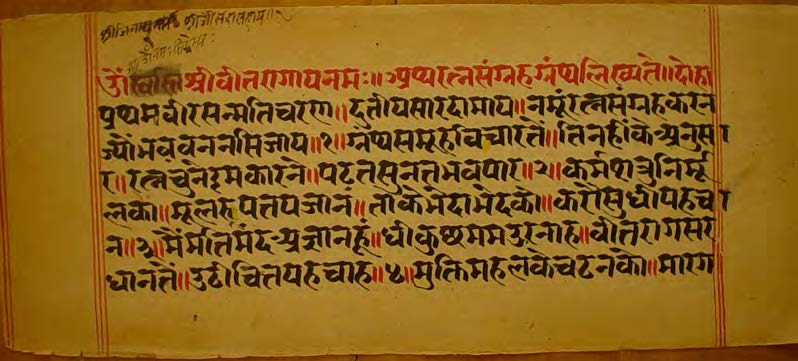 श्रीजिनायनमः श्रीजीसदासहाय॥
ॐ स्वस्ति श्रीवीतरागायनमः॥ अथरत्नसंग्रहग्रंथलिख्यते॥ दोहा
प्रथमवीरसन्मतिचरण॥ दुतीयसारदामाय॥ नमूंरत्नसंग्रहकरन
ज्यौंभववनननसिजाय॥१॥ ग्रंथसमूहविचारतैं॥ तिनहींकैअनुसा
र॥ रत्नचुनेइमकारनै॥ पढतसुनतभवपार॥२॥ कर्मशत्रुनिर्मू
लकौ॥ मूलरुपतपजान॥ ताकेभेदाभेदकौ॥ करौसुधीपहचा
न॥३॥ मैंमतिमंदअज्ञानहूं॥ धीकुछममउरनाह॥ वीतरागसर
धानतैं॥ उठीचितयहचाह॥४॥ मुक्तिमहलकेचढनकौ॥ मारग